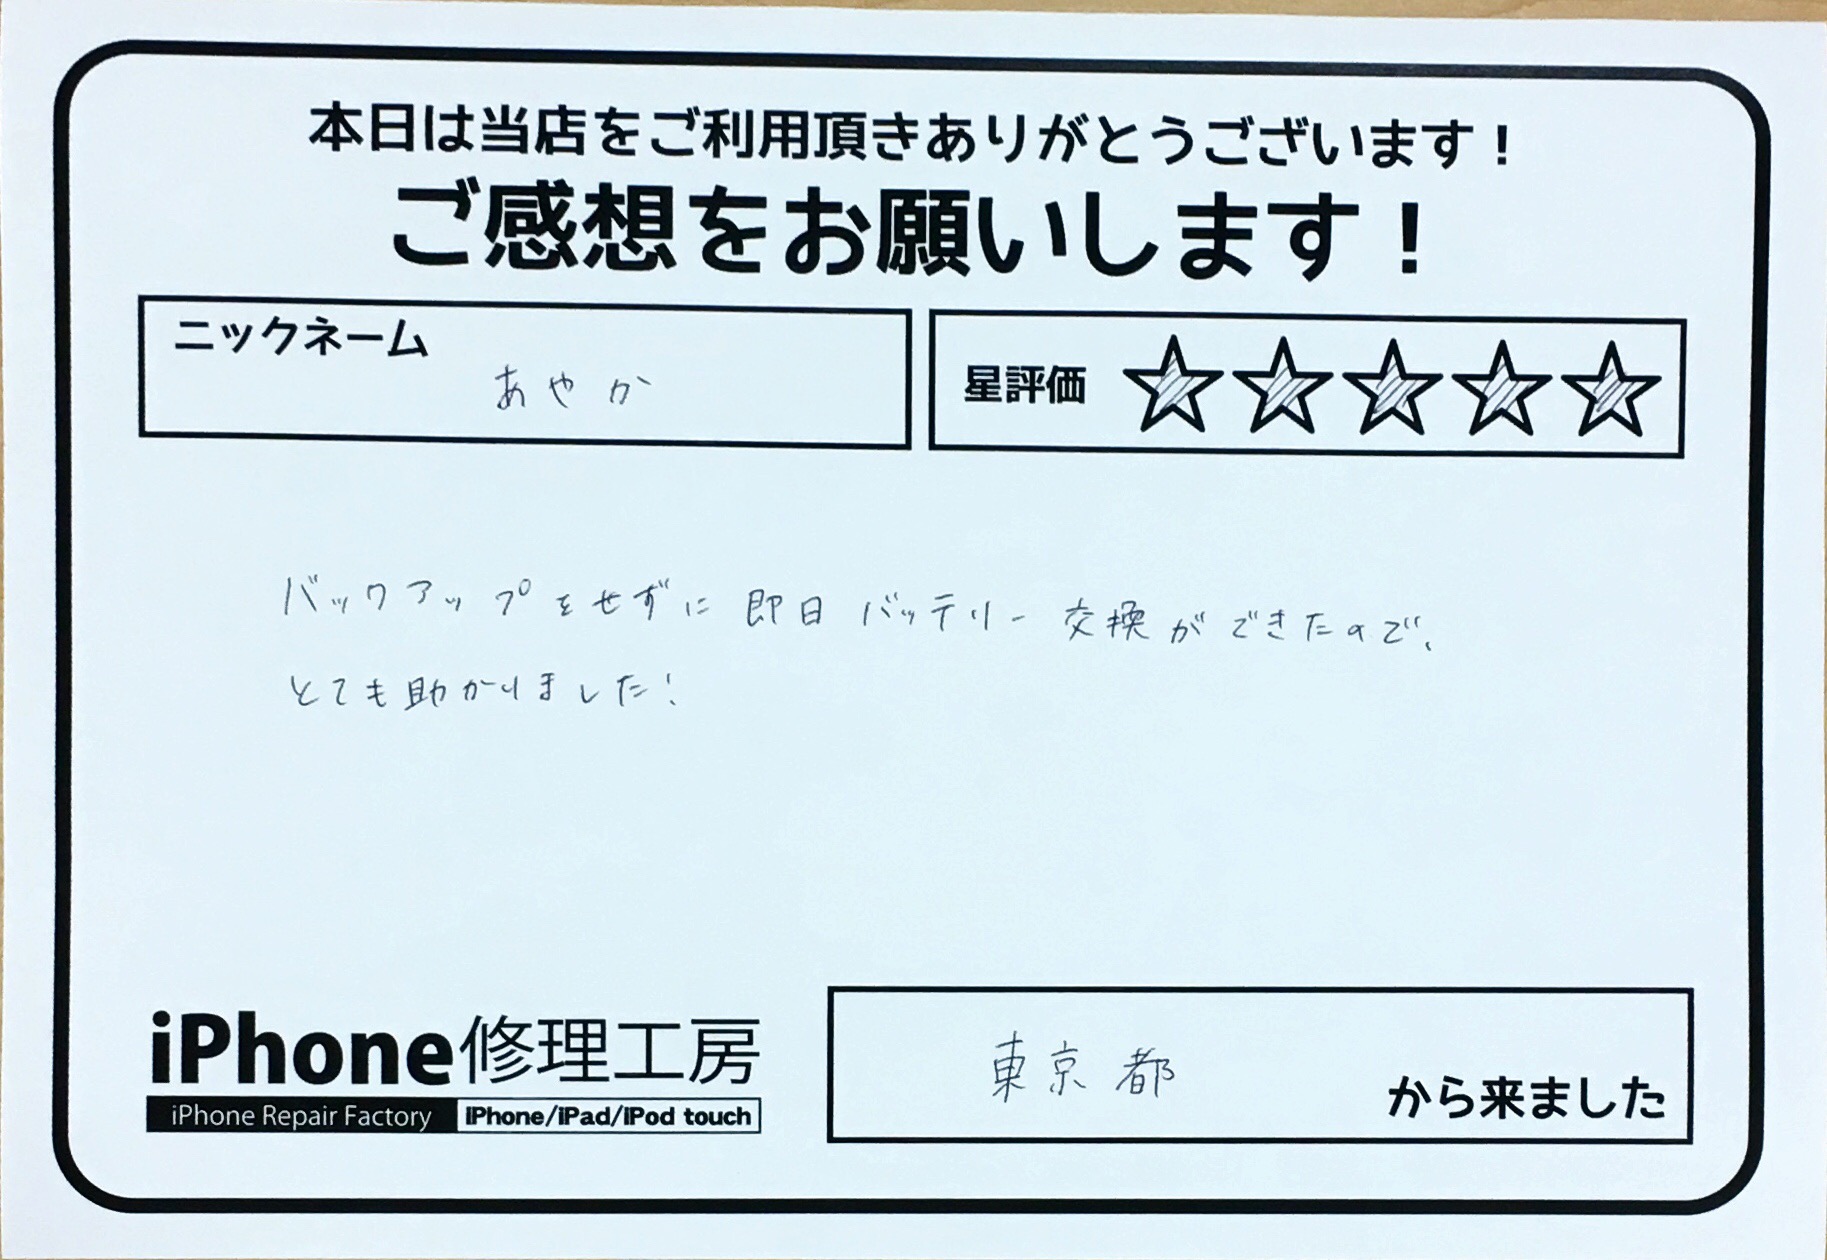 本日は当店をご利用頂きありがとうございます！
ご感想をお願いします！
ニックネーム
あやか
星評価 ☆☆☆☆☆
バックアップをせずに即日バッテリー交換ができたので、
とても助かりました！
iPhone修理工房
iPhone Repair Factory iPhone/iPad/iPod touch
東京都 から来ました